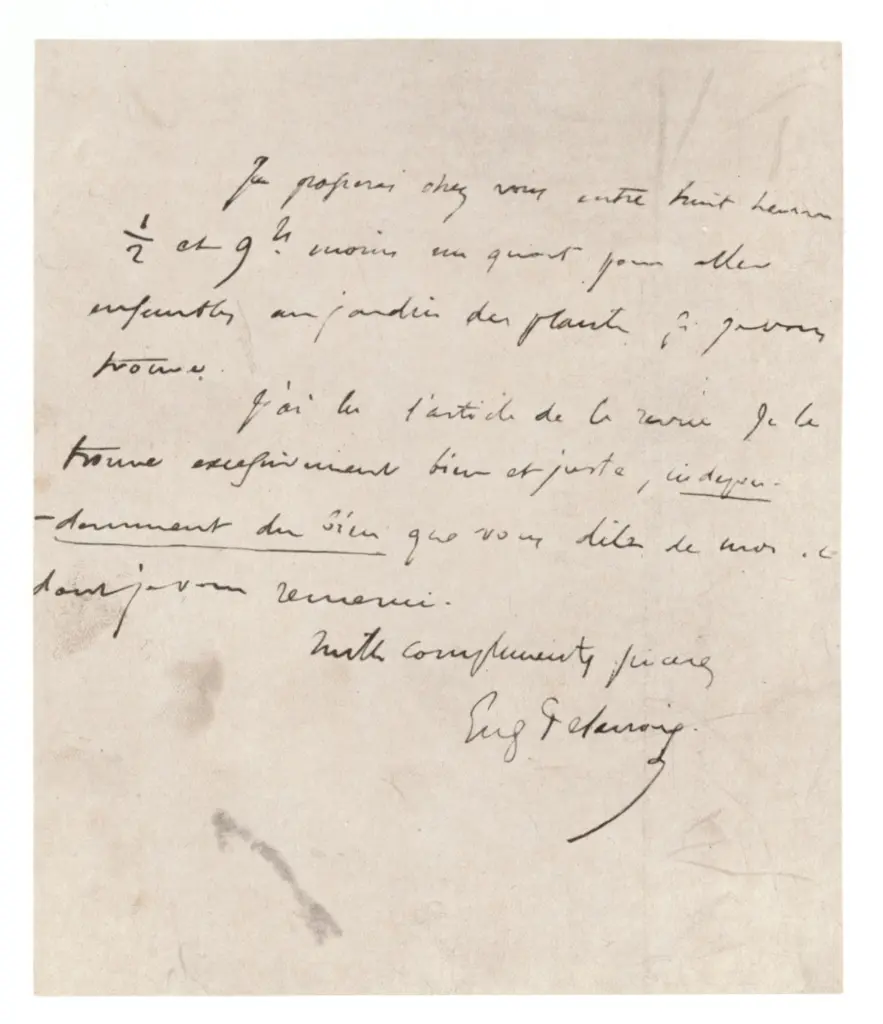 Je passerai chez vous entre huit heures
1/2 et 9 h. moins un quart pour aller
ensembles au jardin des plantes si je vous
trouve.
J'ai lu l'article de la revue Je le
trouve excessivement bien et juste, indépen-
-damment du bien que vous dites de moi et
dont je vous remercie.
Mille compliments sincères
Eug Delacroix.